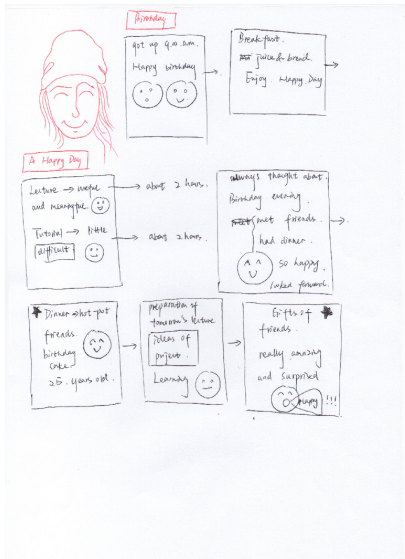 Birthday
got up 9:00 a.m.
Happy birthday
Breakfast.
juice & bread.
Enjoy Happy Day
A Happy Day
Lecture → useful
and meaningful
→ about 2 hours.
Tutorial → little
difficult
→ about 2 hours.
always thought about
Birthday evening.
met friends.
had dinner.
so happy
looked forward.
Dinner → hot-pot
friends.
birthday
cake
25 years old.
preparation of
tomorrow's lecture
ideas of
project.
Learning
Gifts of
friends.
really amazing
and surprised
Happy !!!